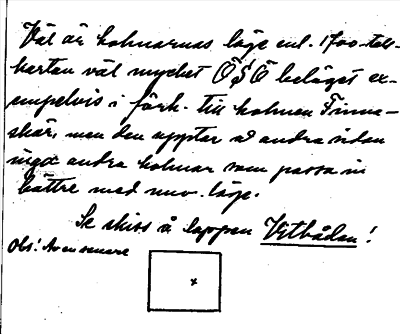 Väl är holmarnas läge enl. 1700-tals-
kartan väl mycket Ö § Ö beläget ex-
empelvis i förh. till holmen Finna-
skär, men den upptar å andra sidan
inga andra holmar som passa in
bättre med nuv. läge.
Se skiss å lappen Vitbådan!
Obs!
x